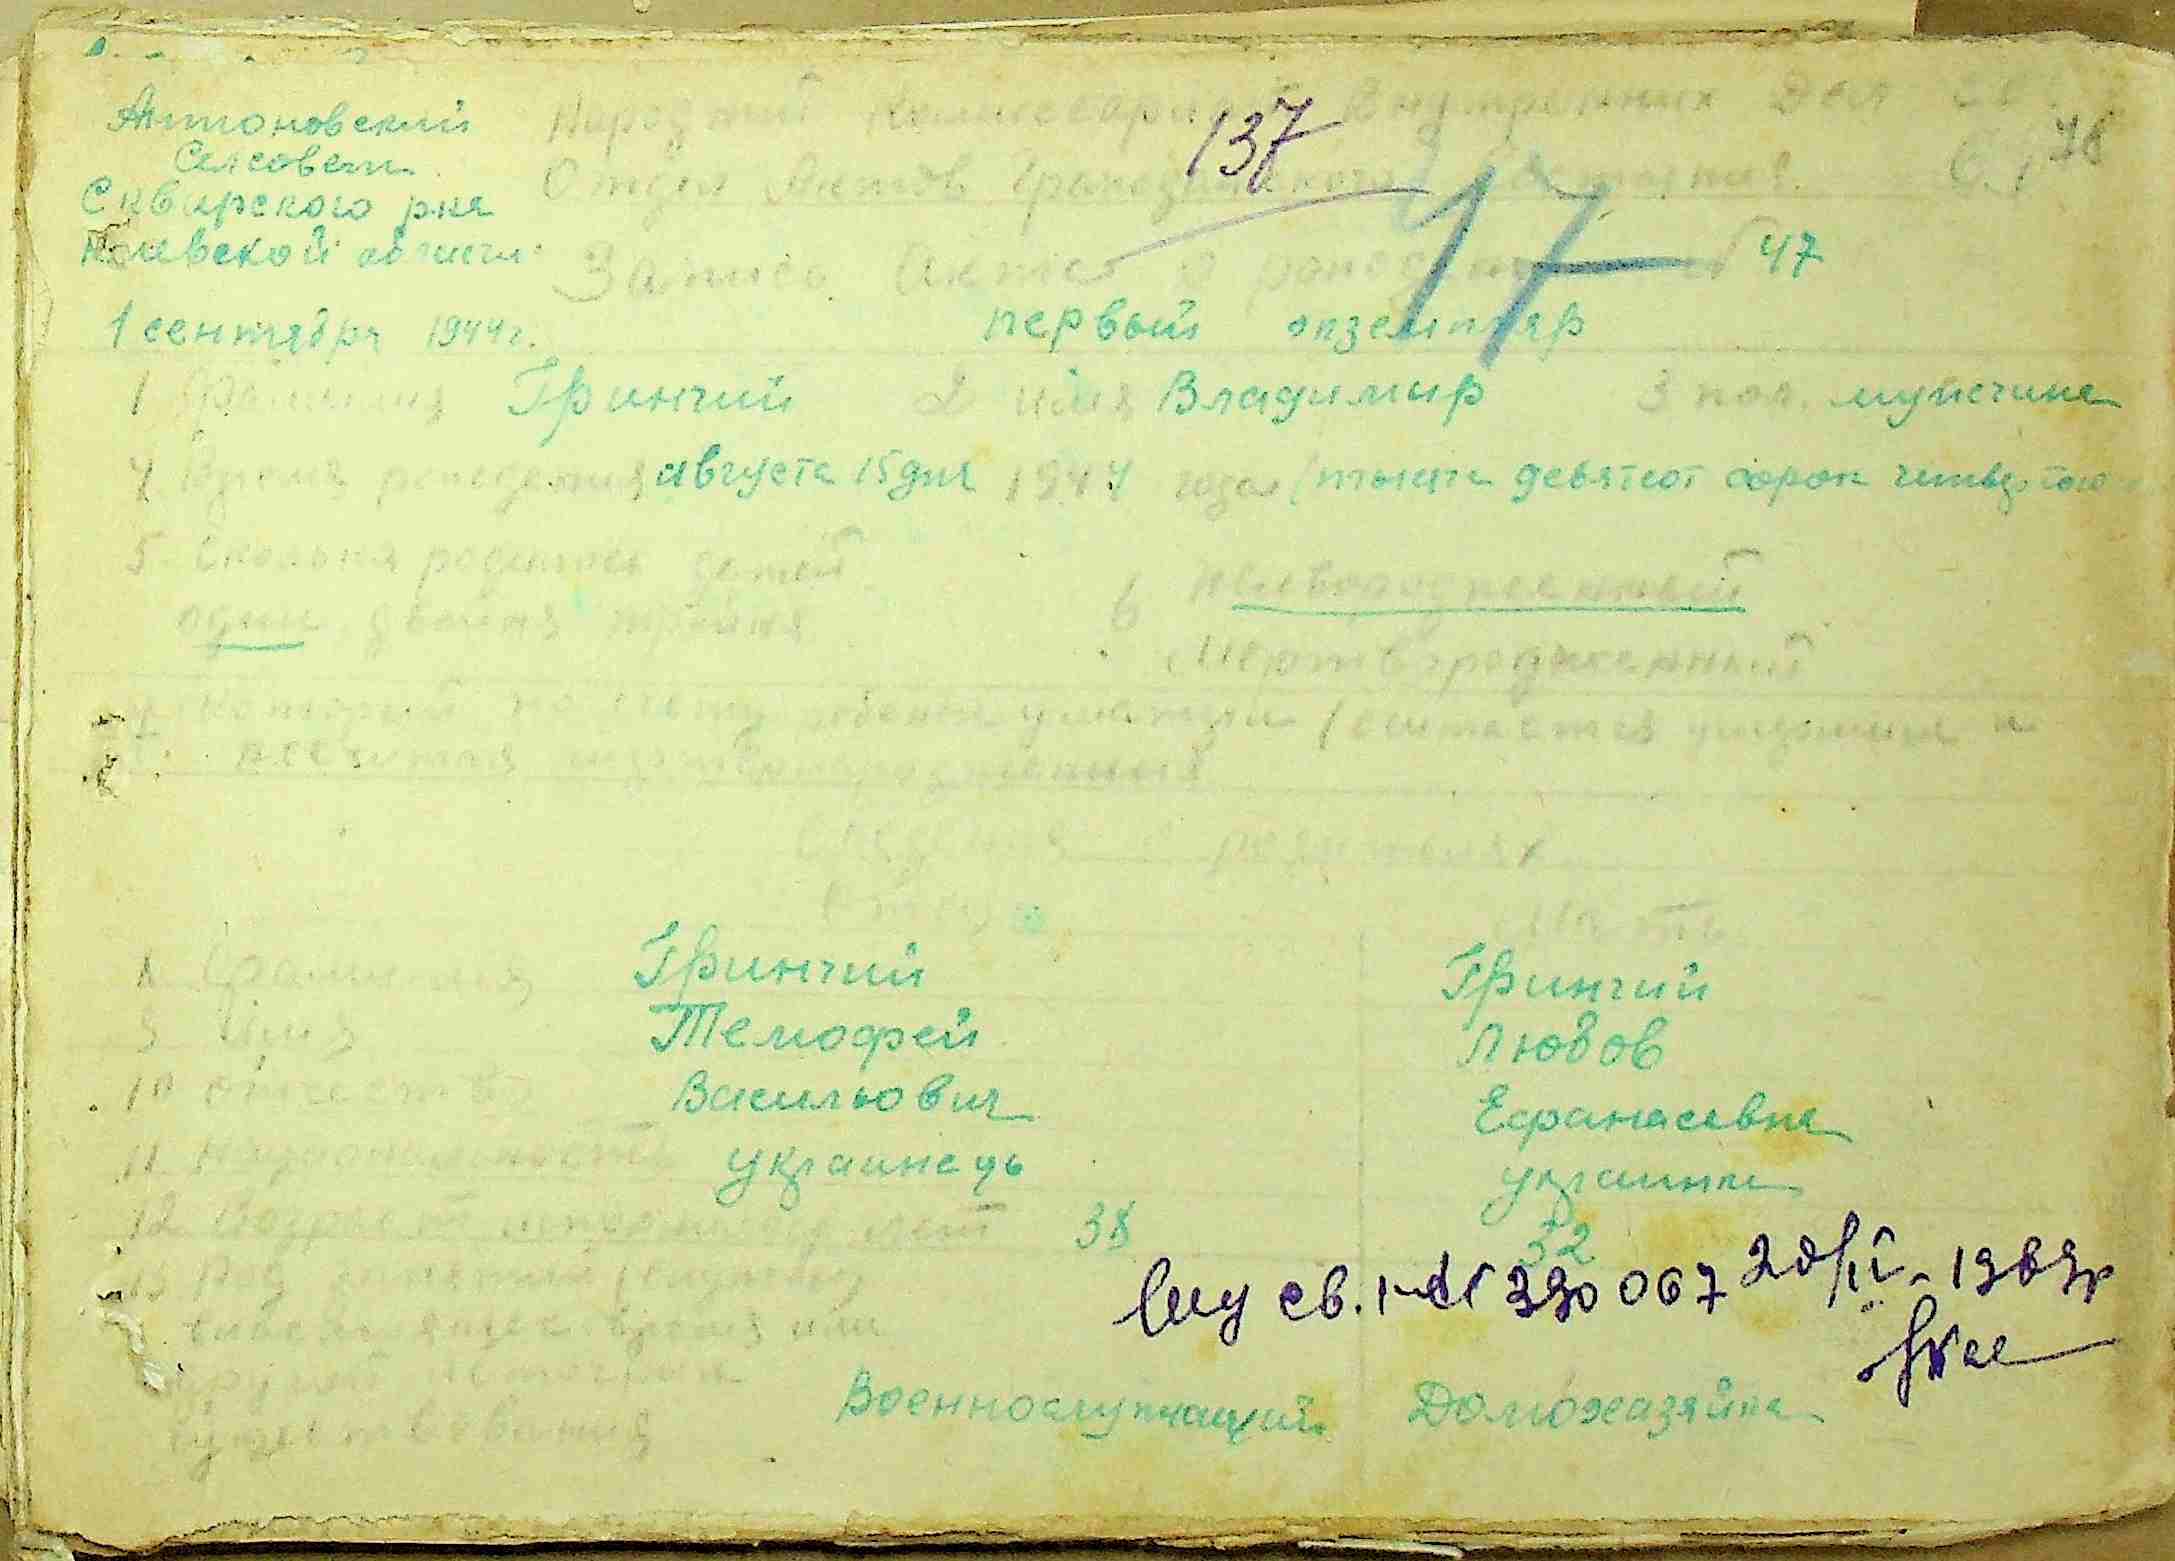 Антоновский
Сельсовет
Сквирского р-на
Киевской области
Народный Комиссариат Внутренних Дел
137
Отдел Актов Гражданского Состояния
76
17
Запись Акта о рождении
47
1 сентября 1944 г.
первый экземпляр
1 Фамилия Гринчий 2 имя Владимир 3 пол. мужчина
4 Время рождения августа 15 дня 1944 года (тысяча девятсот сорок четвертого
5 Сколько родилось детей
один, двойня тройня
6 Живорожденный
Мертворожденный
7 который по счету ребенок у матери (считается умершие и
не считая мертворожденных
Сведения о родителях
Отец Мать
8 Фамилия Гринчий Гринчий
9 Имя Темофей Любов
10 Отчество Васильович Ефанасевна
11 Национальность украинець украинка
12 Возраст исполнилось лет 38 32
13 Род занятий
в настоящее время или
другой источник
существования
Военнослужащий Домохазяйка
св. 330 067 1969г